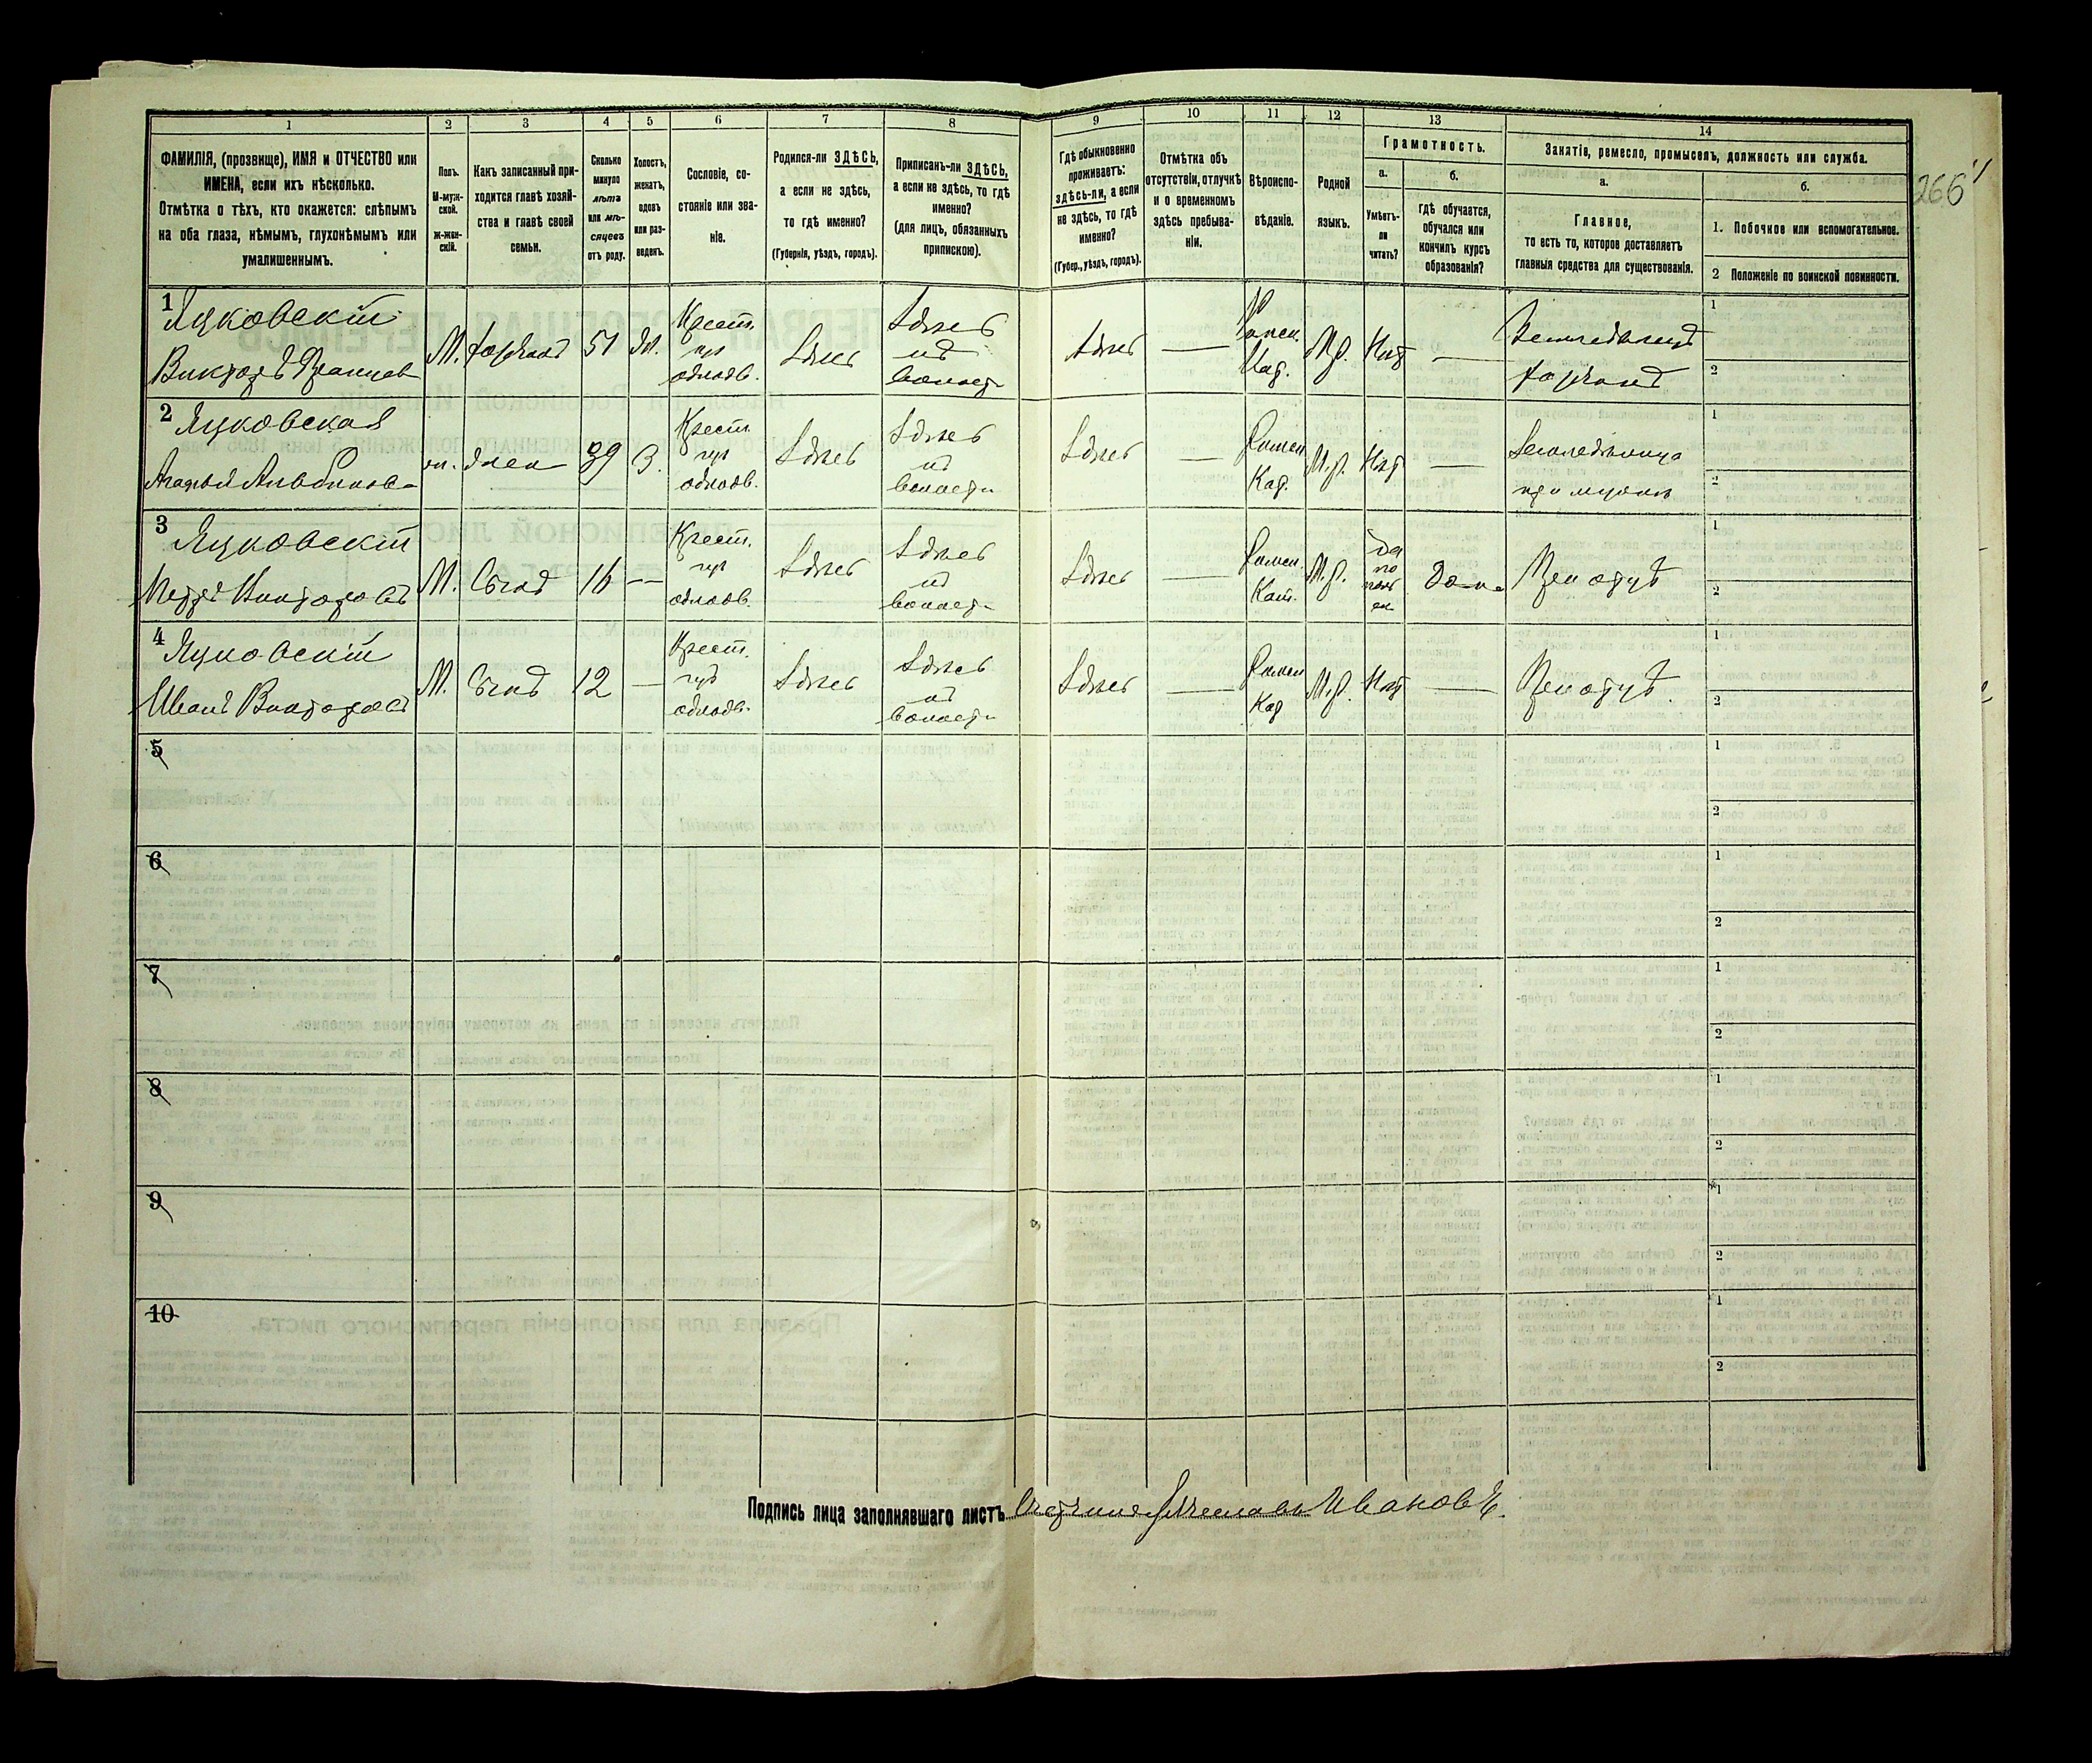 266
1 2 3 4 5 6 7 8 9 10 11 12 13 14
ФАМИЛІЯ, (прозвище), ИМЯ и ОТЧЕСТВО или
ИМЕНА, если ихъ нѣсколько.
Отмѣтка о тѣхъ, кто окажется: слѣпымъ
на оба глаза, нѣмымъ, глухонѣмымъ или
умалишеннымъ.
Полъ.
М-муж-
ской.
Ж-жен-
скій.
Какъ записанный при-
ходится главѣ хозяй-
ства и главѣ своей
семьи.
Сколько
минуло
лѣтъ
или мѣ-
сяцевъ
отъ роду.
Холостъ,
женатъ,
вдовъ
или раз-
веденъ.
Сословіе, со-
стояніе или зва-
ніе.
Родился-ли ЗДѢСЬ,
а если не здѣсь,
то гдѣ именно?
(Губернія, уѣздъ, городъ).
Приписанъ-ли ЗДѢСЬ,
а если не здѣсь, то гдѣ
именно?
(для лицъ, обязанныхъ
припискою).
Гдѣ обыкновенно
проживаетъ:
здѣсь-ли, а если
не здѣсь, то гдѣ
именно?
(Губер., уѣздъ, городъ).
Отмѣтка объ
отсутствіи, отлучкѣ
и о временномъ
здѣсь пребыва-
ніи.
Вѣроиспо-
вѣданіе.
Родной
языкъ.
Грамотность.
а.
Умѣетъ-
ли
читать?
б.
гдѣ обучается,
обучался или
кончилъ курсъ
образованія?
Занятіе, ремесло, промыселъ, должность или служба.
а.
Главное,
то есть то, которое доставляетъ
главныя средства для существованія.
б.
1. Побочное или вспомогательное.
2 Положеніе по воинской повинности.
1 Яцковскій
Викторъ Францев
М. хозяинъ 51 Ж.
Крест.
изъ
однодв.
Здѣсь
Здѣсь
въ
волости
Здѣсь —
Римск.
Кат.
М.р. Нѣтъ —
Земледѣлецъ
хозяинъ
1
2
2 Яцковская
Альбинов
ж. жена 39 З.
Крест.
изъ
однодв.
Здѣсь
Здѣсь
въ
волости
Здѣсь —
Римск
Кат.
М.р. Нѣтъ —
при мужѣ
1
2
3 Яцковскій
Петръ Викторовъ
М. Сынъ 16 —
Крест.
изъ
однодв.
Здѣсь
Здѣсь
въ
волости
Здѣсь —
Римск.
Кат.
М.р.
да
по
поль
ск
дома
При отцѣ
1
2
4 Яцковскій
Иванъ Викторовъ
М. Сынъ 12 —
Крест.
изъ
однодв.
Здѣсь
Здѣсь
въ
волости
Здѣсь —
Римск
Кат
М.р. Нѣтъ —
При отцѣ.
1
2
5
1
2
6
1
2
7
1
2
8
1
2
9
1
2
10
1
2
Подпись лица заполнявшаго листъ Ивановъ.